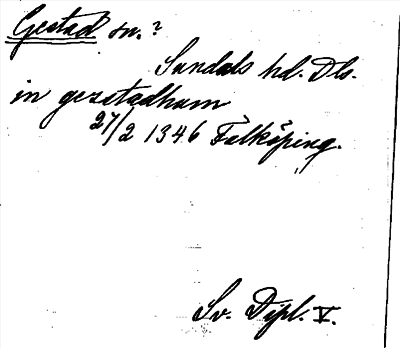 Gestad sn.?
Sundals hd. Dls.
in gezstadham
27/2 1346 Falköping.
Sv. Dipl. V.